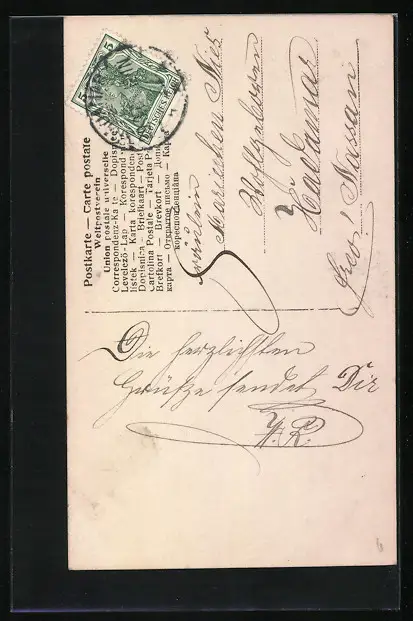 Postkarte — Carte postale
Weltpostverein
Union postale universelle
Correspondenz-Karte — Dopisnice
Levelező-Lap — Korespond
listek — Karta korespond
Dopisnica — Briefkaart — Post
Cartolina Postale — Tarjeta P
Brefkort — Brevkort — Доп
карта — Открытое письмо — Ka
кореспонденційна
5
5
DEUTSCHES REICH
Fräulein
Mariechen Nies
Wohlgeboren
Hadamar
Bez. Nassau
Die herzlichsten
Grüße sendet Dir
H. R.
6